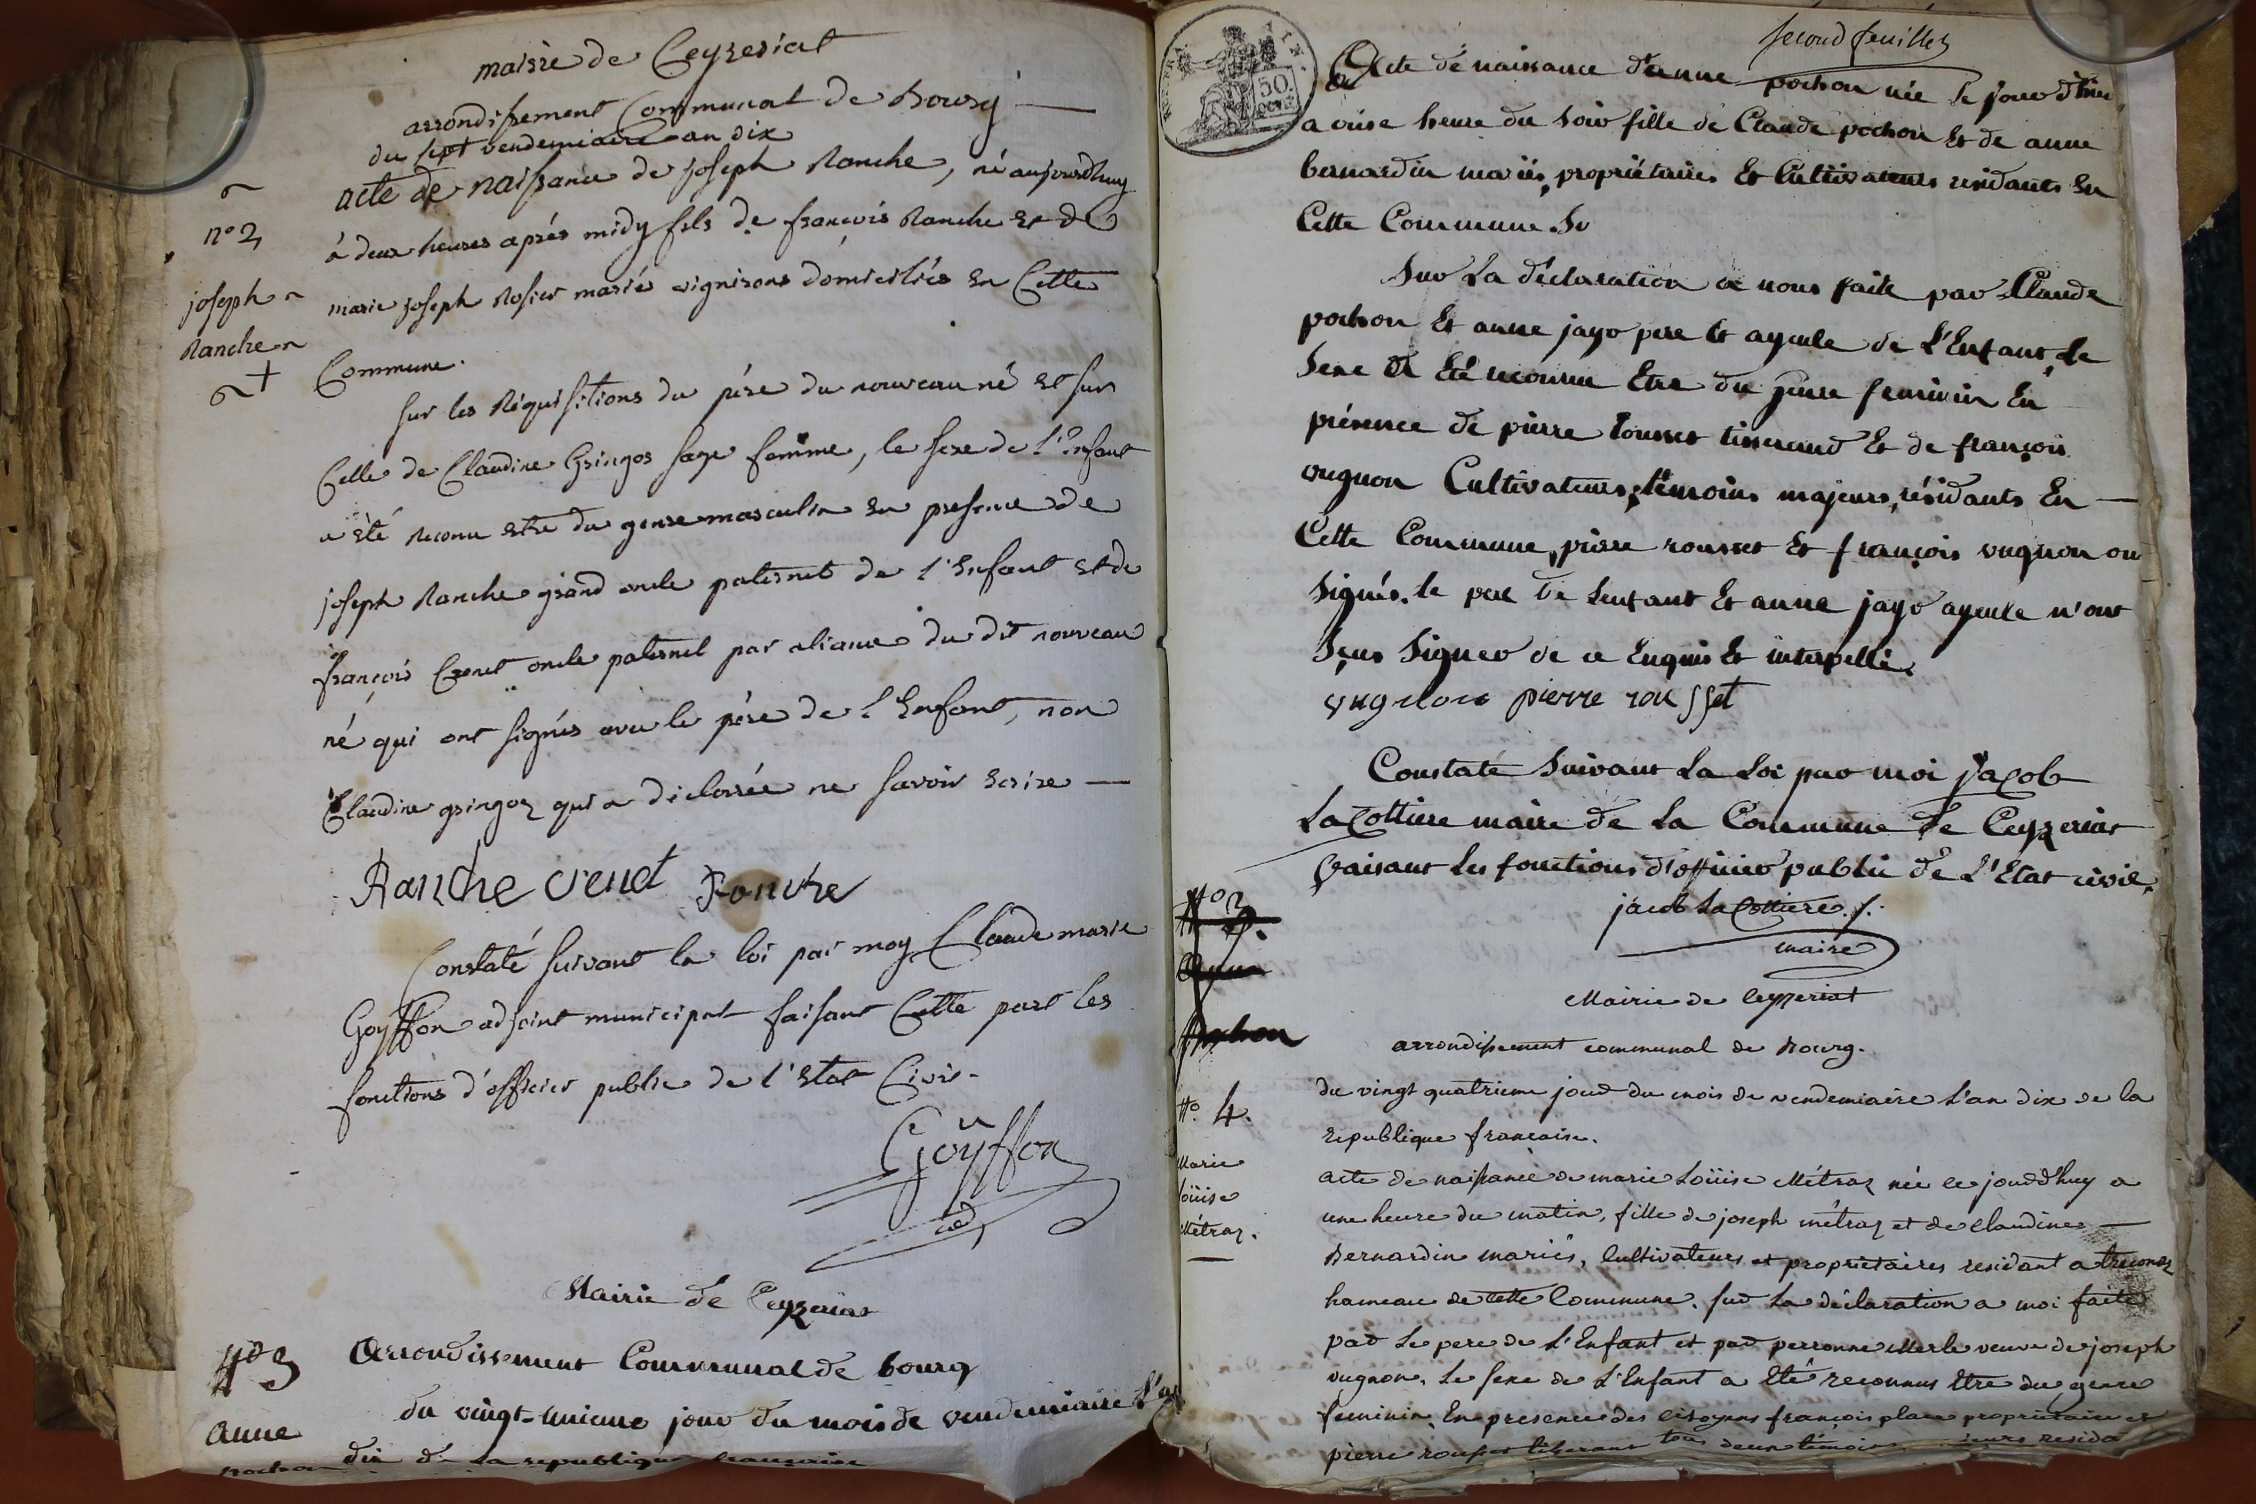 mairie de Ceyzeriat
arrondissement Communal de Bourg
du sept vendemiaire an dix
acte de naissance de joseph Ranche, né aujourdhuy
à deux heures après midy fils de françois Ranche et de
marie joseph Rosier mariés vignirons domiciliés en Cette
Commune.
n° 2
joseph
Ranche
+
sur les Réquisitions du père du nouveau né et sur
Celle de Claudine Gringoz sage femme, le sexe de l'Enfant
a été reconu etre du genre masculin en presence de
joseph Ranche grand oncle paternel de l'Enfant et de
françois oncle paternel par aliance du dit nouveau
né qui ont signés avec le père de l'Enfant, non
Claudine gringoz qui a déclarée ne savoir écrire —
Ranche Ranche
Constaté suivant la loi par moy Claude marie
Goyffon adjoint municipal faisant Cette part les
fonctions d'officier public de l'Etat Civil.
Goÿffon
adj
Mairie de Ceyzeriat
N° 3
Anne
pochon
Arrondissement Communal de bourg
du vingt-unieme jour du mois de vendemiaire l'an
dix de la republique francaise
second feuillet
50
Acte de naissance d'anne pochon née le jour d'hier
a onse heure du soir fille de Claude pochon Et de anne
bernardin mariés, propriétaires Et Cultivateurs residants En
Cette Commune.
Sur La déclaration a nous faite par Claude
pochon Et anne jayr pere Et ayeule de L'Enfant, Le
Sexe a Eté reconnu Etre du genre feminin En
présence de pierre rousset tisserand Et de françois
vugnon Cultivateurs, témoins majeurs, résidants En —
Cette Commune, pierre rousset Et françois vugnon on
Signés. le pere de lenfant Et anne jayr ayeule n'ont
Sçus Signer de ce Enquis Et interpellé.
vugnon pierre rousset
Constaté Suivant La Loi par moi jacob
LaCottiere maire de La Commune de Ceyzeriat
faisant Les fonctions d'officier public de L'Etat civil.
jacob LaCottiere
maire
N° 3.
Anne
pochon
Mairie de Ceyzeriat
arrondissement communal de Bourg.
N° 4.
Marie
Loüise
Métraz.
du vingt quatrieme jour du mois de vendemiaire L'an dix de la
republique francaise.
acte de naissance de marie Loüise Métraz née ce jourd'huy a
une heure du matin, fille de joseph métraz et de Claudine —
Bernardin mariés, Cultivateurs et proprietaires residant a treconaz
hameau de cette Commune. sur La déclaration a moi faite
par Le pere de L'Enfant et par perronne Merle veuve de joseph
vugnon. Le sexe de L'Enfant a Eté reconnus Etre du genre
feminin. En presence des citoyens françois place proprietaire et
pierre rousset tisserant tous deux témoins majeurs resida